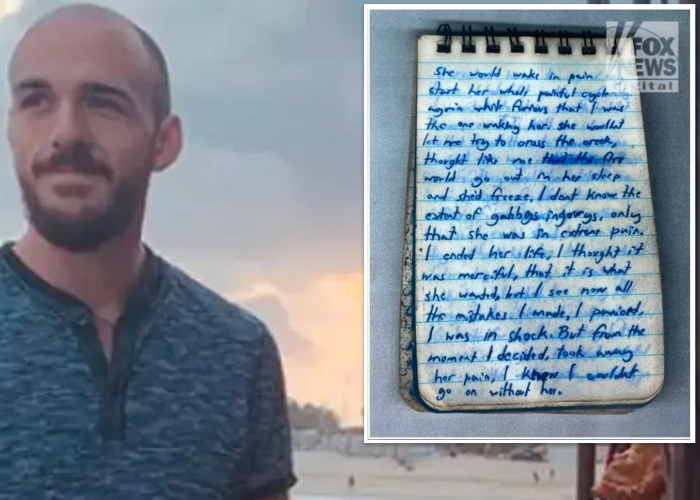 FOX
NEWS
Digital
She would wake in pain
start her whole painful cycle
again while furious that I was
the one waking her. she wouldnt
let me try to cross the creek,
thought like me that the fire
would go out in her sleep
and she'd freeze, I dont know the
extent of gabbys only
that she was in extreme pain.
I ended her life, I thought it
was merciful, that it is what
she wanted, but I see now all
the mistakes I made, I panicked,
I was in shock. But from the
moment I decided, took away
her pain, I knew I couldnt
go on without her.